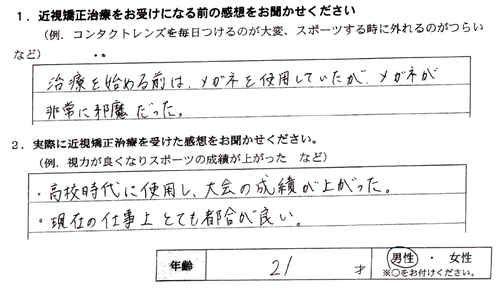 1．近視矯正治療をお受けになる前の感想をお聞かせください
（例．コンタクトレンズを毎日つけるのが大変、スポーツする時に外れるのがつらい
など）
治療を始める前は、メガネを使用していたが、メガネが
非常に邪魔だった。
2．実際に近視矯正治療を受けた感想をお聞かせください。
（例．視力が良くなりスポーツの成績が上がった　など）
・高校時代に使用し、大会の成績が上がった。
・現在の仕事上とても都合が良い。
年齢　21　才　男性　・　女性
※○をお付けください。